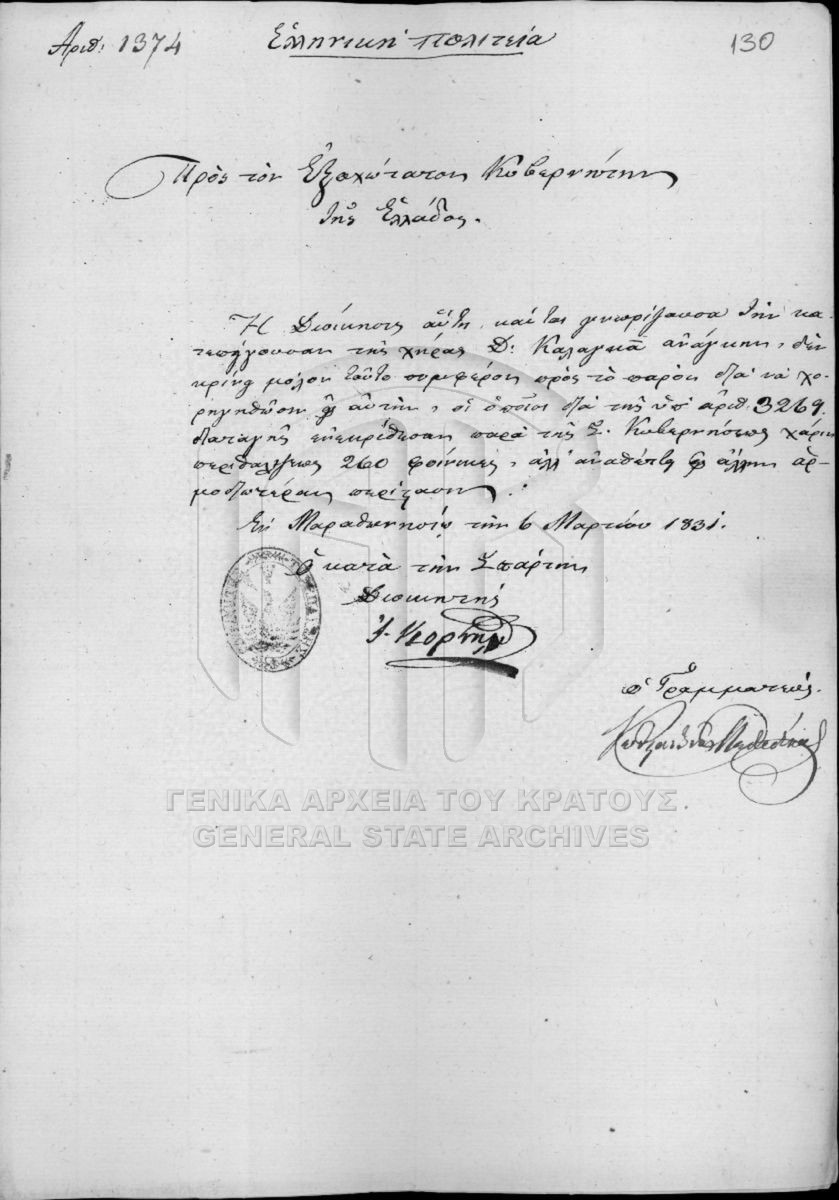 Ἀριθ: 1374
Ἑλληνικὴ Πολιτεία
130
Πρὸς τὸν Ἐξοχώτατον Κυβερνήτην
τῆς Ἑλλάδος.
Ἡ Διοίκησις αὕτη, καίτοι γνωρίζουσα τὴν κα-
τεπείγουσαν τῆς χήρας Δ. ἀνάγκην, δὲν
κρίνει μόλον τοῦτο συμφέρον πρὸς τὸ παρὸν διὰ νὰ χο-
ρηγηθῶσιν αὐτὴν, οἱ ὁποῖοι διὰ τῆς ὑπ' ἀριθ. 3269.
διαταγῆς ἐνεκρίθησαν παρὰ τῆς Σ. Κυβερνήσεως χάριν
περιθάλψεως 260 φοίνικες, ἀλλ' ἄλλην ἁρ-
μοδιωτέραν περίστασιν.
Ἐν Μαραθωνησίῳ τὴν 6 Μαρτίου 1831.
Ὁ κατὰ τὴν Σπάρτην
Διοικητὴς
ὁ Γραμματεύς.
ΓΕΝΙΚΑ ΑΡΧΕΙΑ ΤΟΥ ΚΡΑΤΟΥΣ
GENERAL STATE ARCHIVES